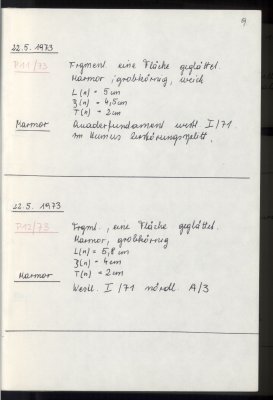 9
22.5.1973
P11/73 Frgment. eine Fläche geglättet.
Marmor, grobkörnig, weich
L(n) = 5 cm
B(n) = 4,5 cm
T(n) = 2 cm
Marmor Quaderfundament westl. I/71.
Im Humus
22.5.1973
P12/73 Frgmt., eine Fläche geglättet.
Marmor, grobkörnig
L(n) = 5,8 cm
B(n) = 4 cm
Marmor T(n) = 2 cm
Westl. I/71 nördl. A/3